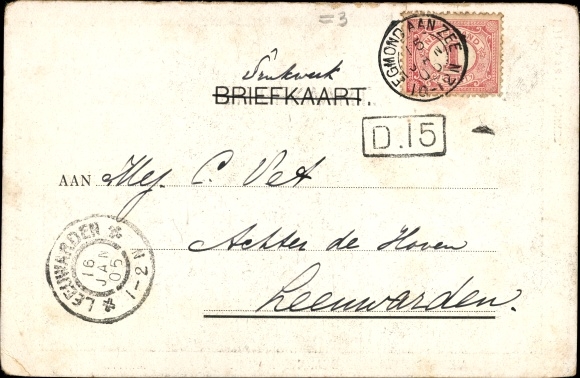 =3
EGMOND AAN ZEE
10-12 N
Drukwerk
BRIEFKAART.
D.15
AAN Mej. C. Vet
Achter de Hoven
Leeuwarden.
LEEUWARDEN
16
JAN
05
1-2 N